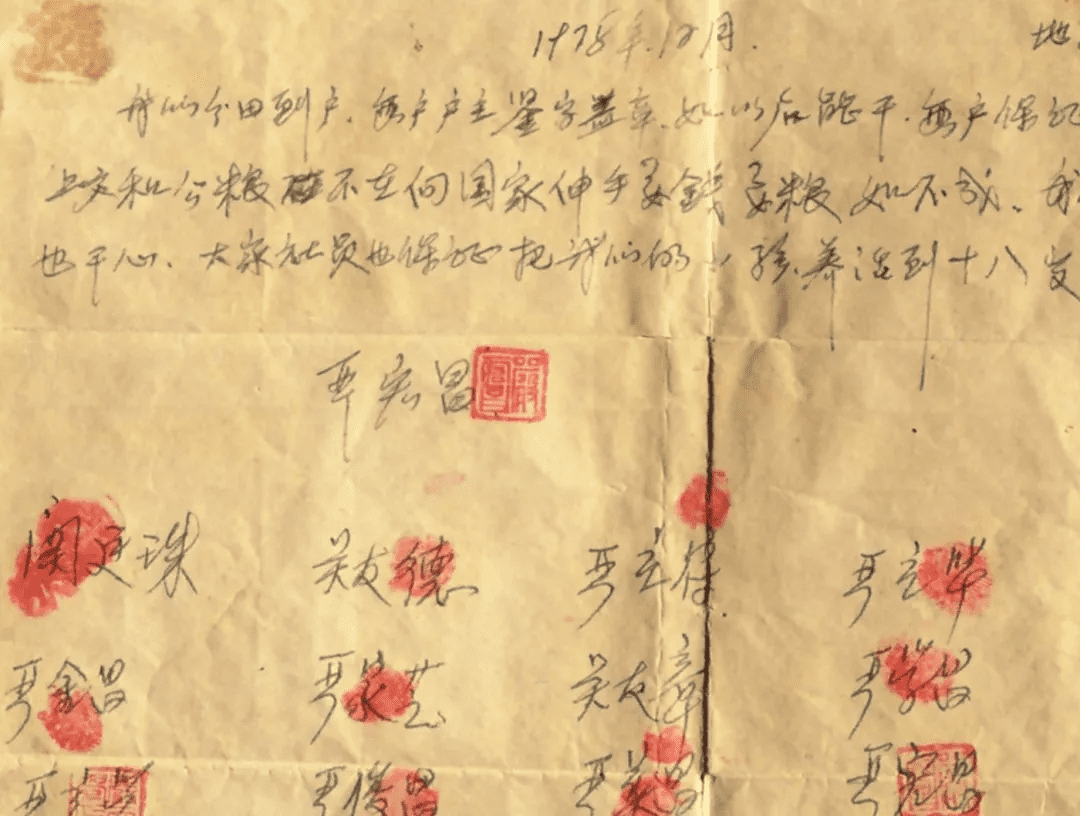 1978年.12月. 地
我们分田到户.每户户主鉴字盖章.如以后能干.每户保证
上交和公粮 不在向国家伸手要錢要粮 如不成.我
也干心.大家社员也保证把我们的小孩养活到十八岁
严宏昌
関廷珠 吴友德 严立符 严立华
严金昌 严家芝 吴友章 严学昌
严俊昌 严美昌 严宏昌